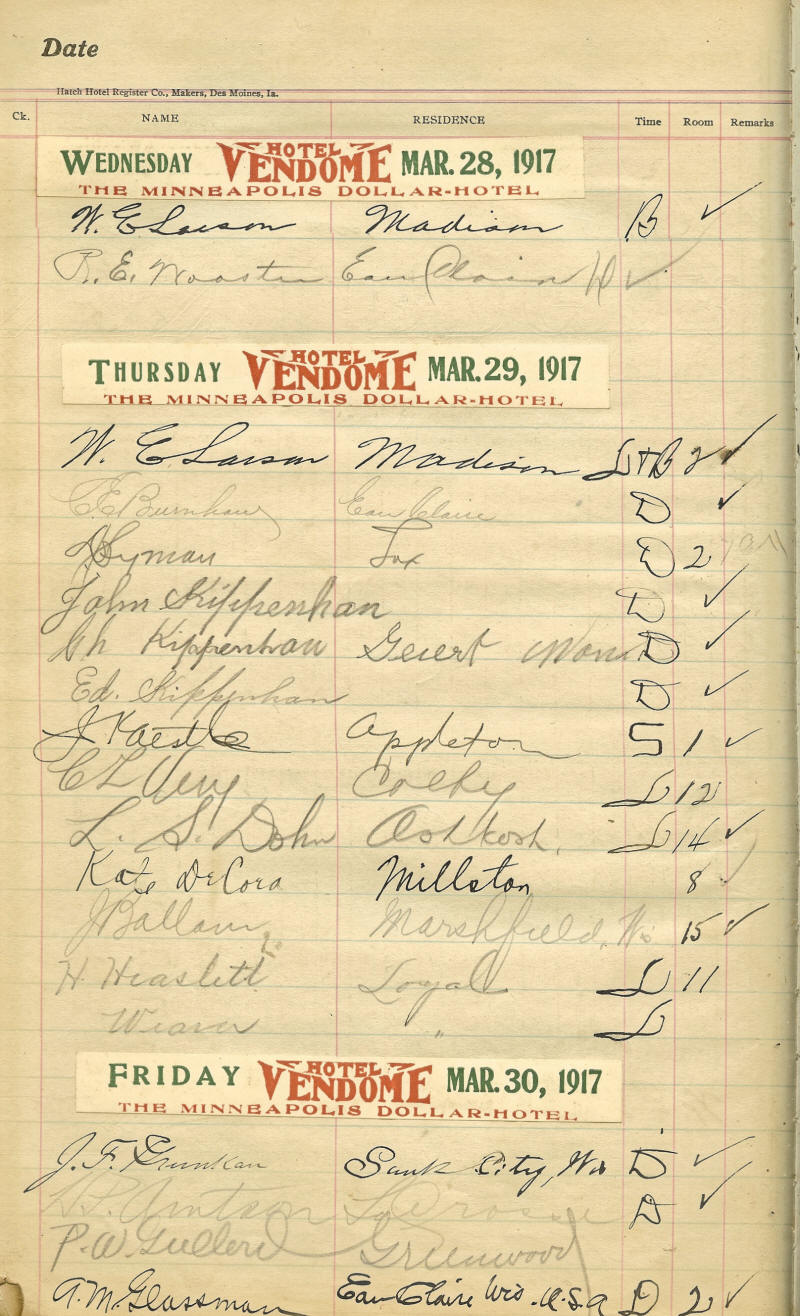 Date
Hatch Hotel Register Co., Makers, Des Moines, Ia.
Ck. NAME RESIDENCE Time Room Remarks
WEDNESDAY HOTEL VENDOME MAR. 28, 1917
THE MINNEAPOLIS DOLLAR-HOTEL
W. E Larson Madison B ✓
R. E. Wooster Eau Claire D ✓
THURSDAY HOTEL VENDOME MAR. 29, 1917
THE MINNEAPOLIS DOLLAR-HOTEL
W. E Larson Madison L+B 2 ✓
C.E. Burnham Eau Claire D ✓
Lyman Fox D 2
John Kippenhan D ✓
Kippenhan D ✓
Ed. Kippenhan D ✓
J Kaestle Appleton S 1 ✓
C L Colby L 12
L. S. Dohn Oshkosh, L 14 ✓
Kate DeCora Millston 8 ✓
J Ballam Marshfield, Wis 15 ✓
H. Heaslett Loyal L 11
Weaver " L
FRIDAY HOTEL VENDOME MAR. 30, 1917
THE MINNEAPOLIS DOLLAR-HOTEL
J. F. Sauk City, Wis D ✓
LaCrosse D ✓
P. W. Greenwood
A. M. Glassman Eau Claire Wis. U.S.A D 2 ✓